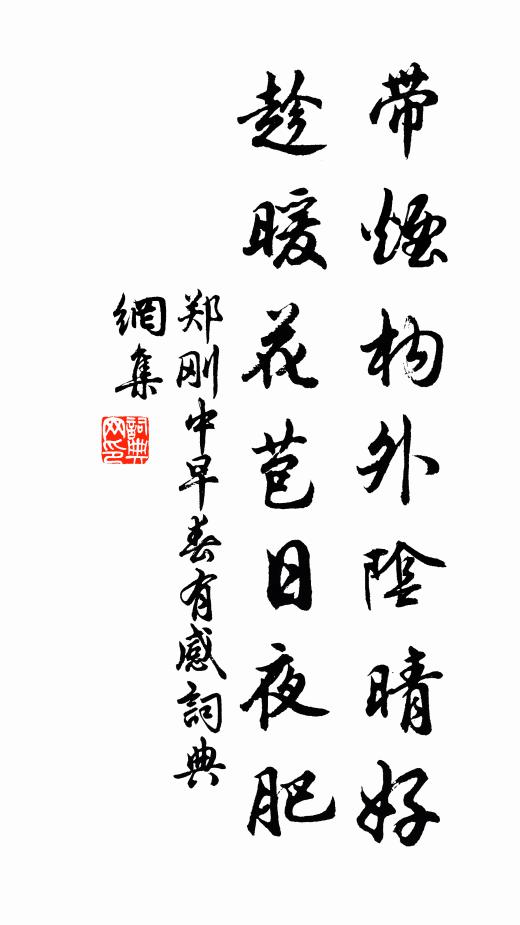 带煙构外陰晴好
趁暖花苞日夜肥
郑刚中早春有感詞典
網集
詞典
网印